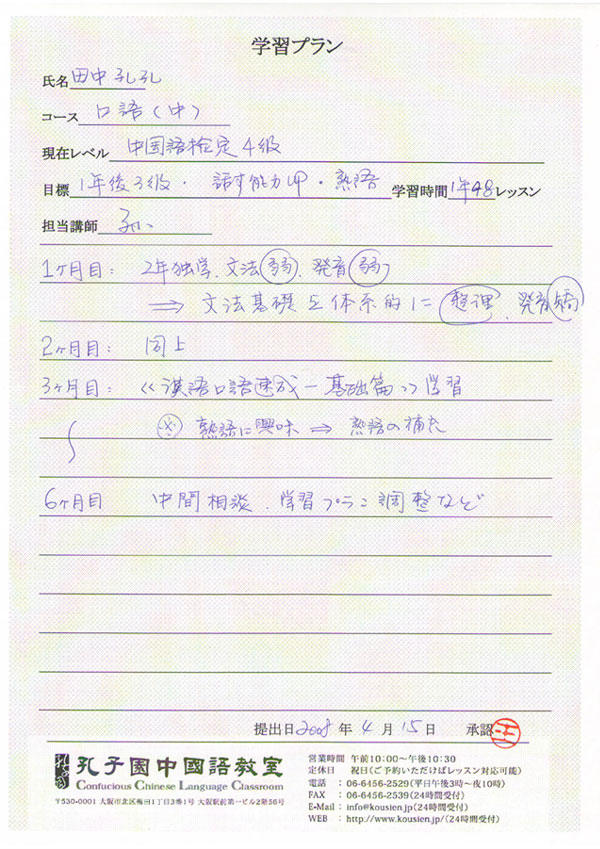 学習プラン
氏名 田中孔孔
コース 口語(中)
現在レベル 中国語検定4級
目標 1年後3級・話す能力UP・熟語 学習時間 1年48レッスン
担当講師
1ヶ月目: 2年独学、文法弱、発音弱
⇒ 文法基礎を体系的に整理、発音矯
2ヶ月目: 同上
3ヶ月目: 《漢語口語速成—基礎篇》学習
※ 熟語に興味 ⇒ 熟語の補充
6ヶ月目 中間相談、学習プラン調整など
提出日 2008年4月15日 承認
孔子園中國語教室
Confucious Chinese Language Classroom
〒530-0001 大阪市北区梅田1丁目3番1号 大阪駅前第一ビル2階56号
営業時間 午前10:00~午後10:30
定休日 祝日(ご予約いただけばレッスン対応可能)
電話 : 06-6456-2529(平日午後3時~夜10時)
FAX : 06-6456-2539(24時間受付)
E-Mail : info@kousien.jp(24時間受付)
WEB : http://www.kousien.jp/(24時間受付)